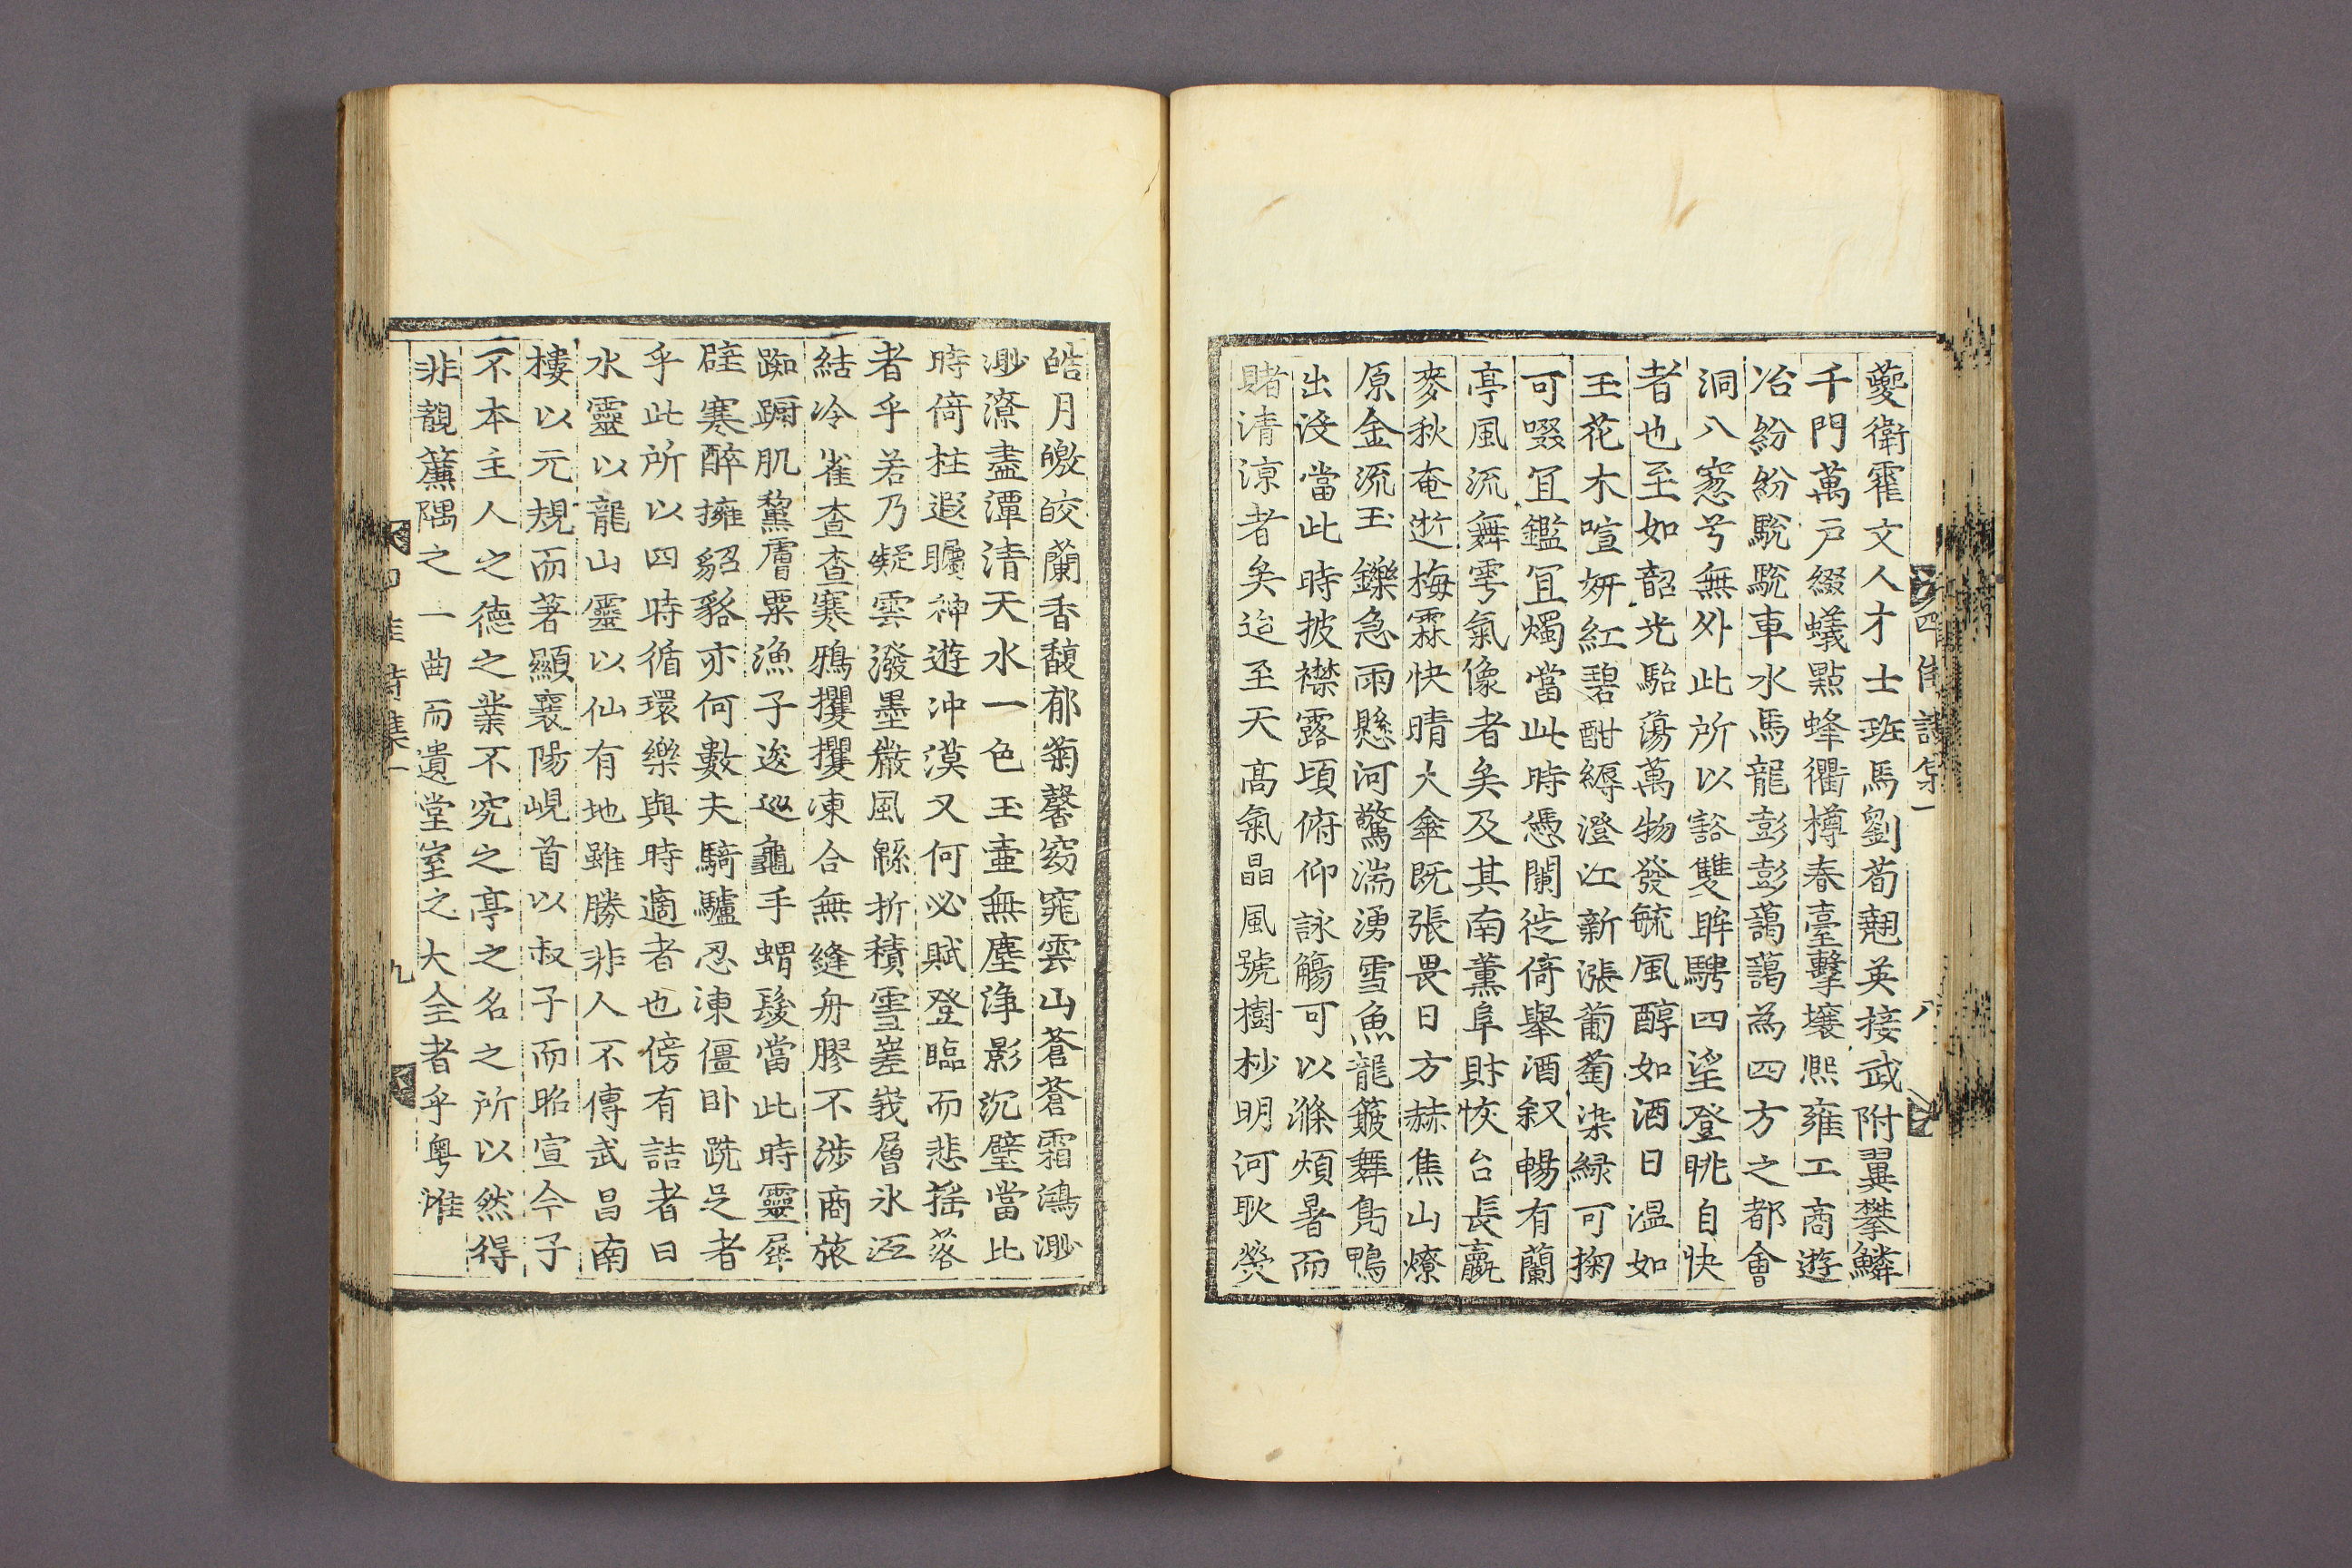 夔衛霍文人才士班馬劉荀翹英接武附翼攀鱗
千門萬戸綴蟻點蜂衢樽春臺擊壤熙雍工商遊
冶紛紛駾駾車水馬龍彭彭藹藹為四方之都會
洞八窓兮無外此所以豁雙眸騁四望登眺自快
者也至如韶光駘蕩萬物發毓風醇如酒日温如
玉花木喧妍紅碧酣縟澄江新漲葡萄染緑可掬
可啜冝鑑冝燭當此時憑闌徙倚舉酒叙暢有蘭
亭風流舞雩氣像者矣及其南薰阜財恢台長贏
麥秋奄逝梅霖快晴大傘既張畏日方赫焦山燎
原金流玉鑠急雨懸河驚湍湧雪魚龍簸舞鳧鴨
出没當此時披襟露頃俯仰詠觴可以滌煩暑而
賭清凉者矣迨至天髙氣晶風號樹杪明河耿熒
四佳詩集一
八
皓月皦皎蘭香馥郁菊馨窈窕雲山蒼蒼霜鴻渺
渺潦盡潭清天水一色玉壷無塵浄影沉璧當此
時倚柱遐矚神遊冲漠又何必賦登臨而悲揺落
者乎若乃凝雲潑墨嚴風緜折積雪嵳峩層氷沍
結冷雀查查寒鴉攫攫凍合無縫舟膠不涉商旅
踟躕肌鰲膚粟漁子逡巡龜手蝟髮當此時靈犀
辟寒醉擁貂貉亦何數夫騎驢忍凍僵卧跣足者
乎此所以四時循環樂與時適者也傍有詰者曰
水靈以龍山靈以仙有地雖勝非人不傳武昌南
樓以元規而著顯襄陽峴首以叔子而昭宣今子
不本主人之德之業不究之亭之名之所以然得
非覩簾隅之一曲而遺堂室之大全者乎粤惟
四佳詩集一
九